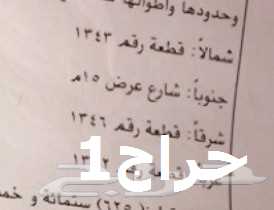 وحدودها وأطوالها
شمالاً: قطعة رقم ١٣٤٣
جنوباً: شارع عرض ١٥م
شرقاً: قطعة رقم ١٣٤٦
حراج1
(٦٢٥) ستمائة و خمس